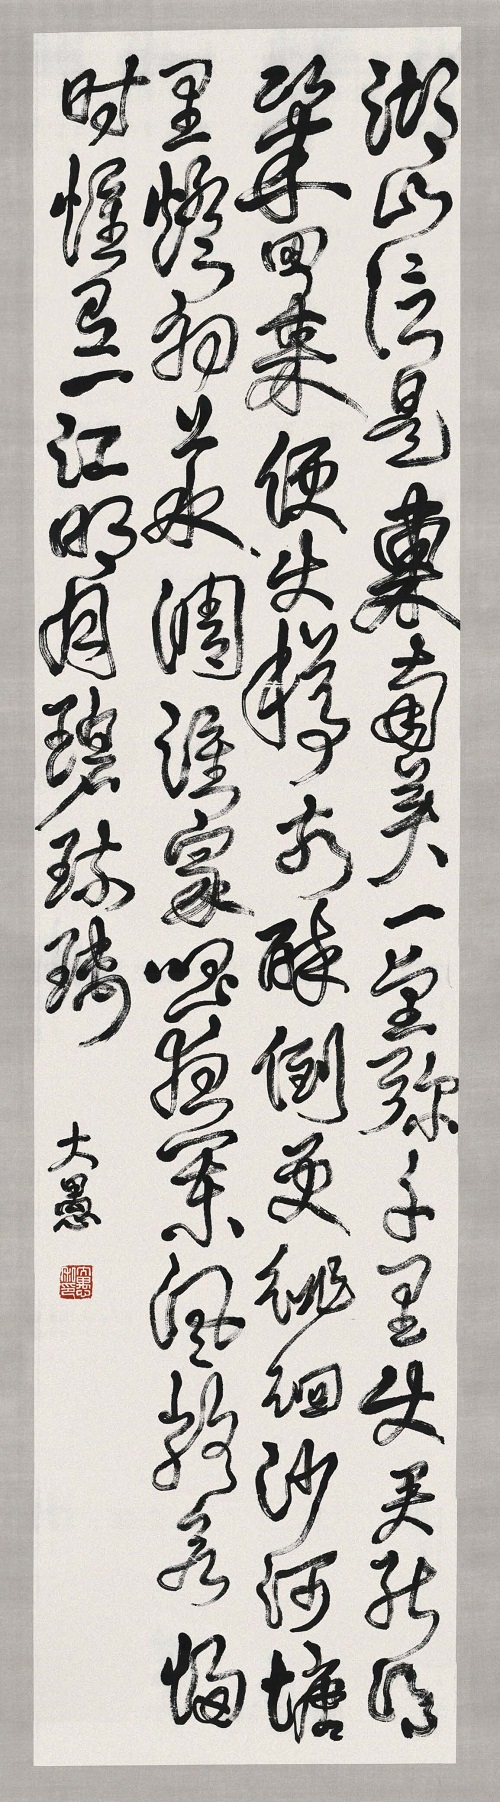 湖山信是東南美一望弥千里使君能得
幾回來便使樽前醉倒更徘徊沙河塘
里燈初上水調誰家唱夜闌風静欲歸
时惟有一江明月碧琉璃
大愚